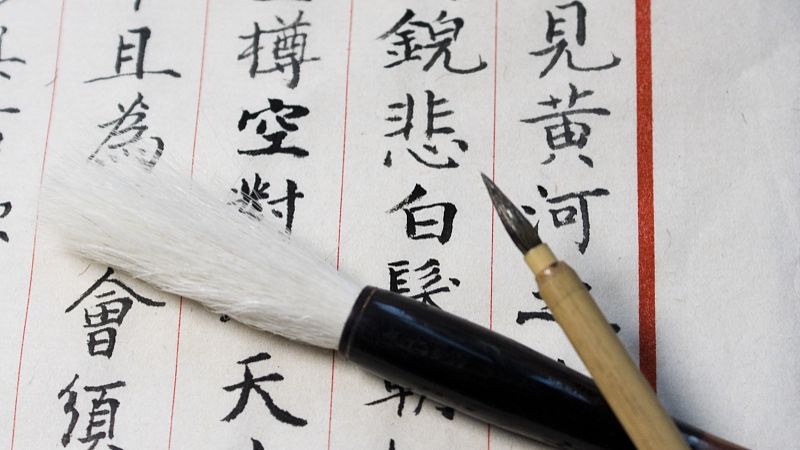 見黃河
鏡悲白髮朝
樽空對天
且為會須